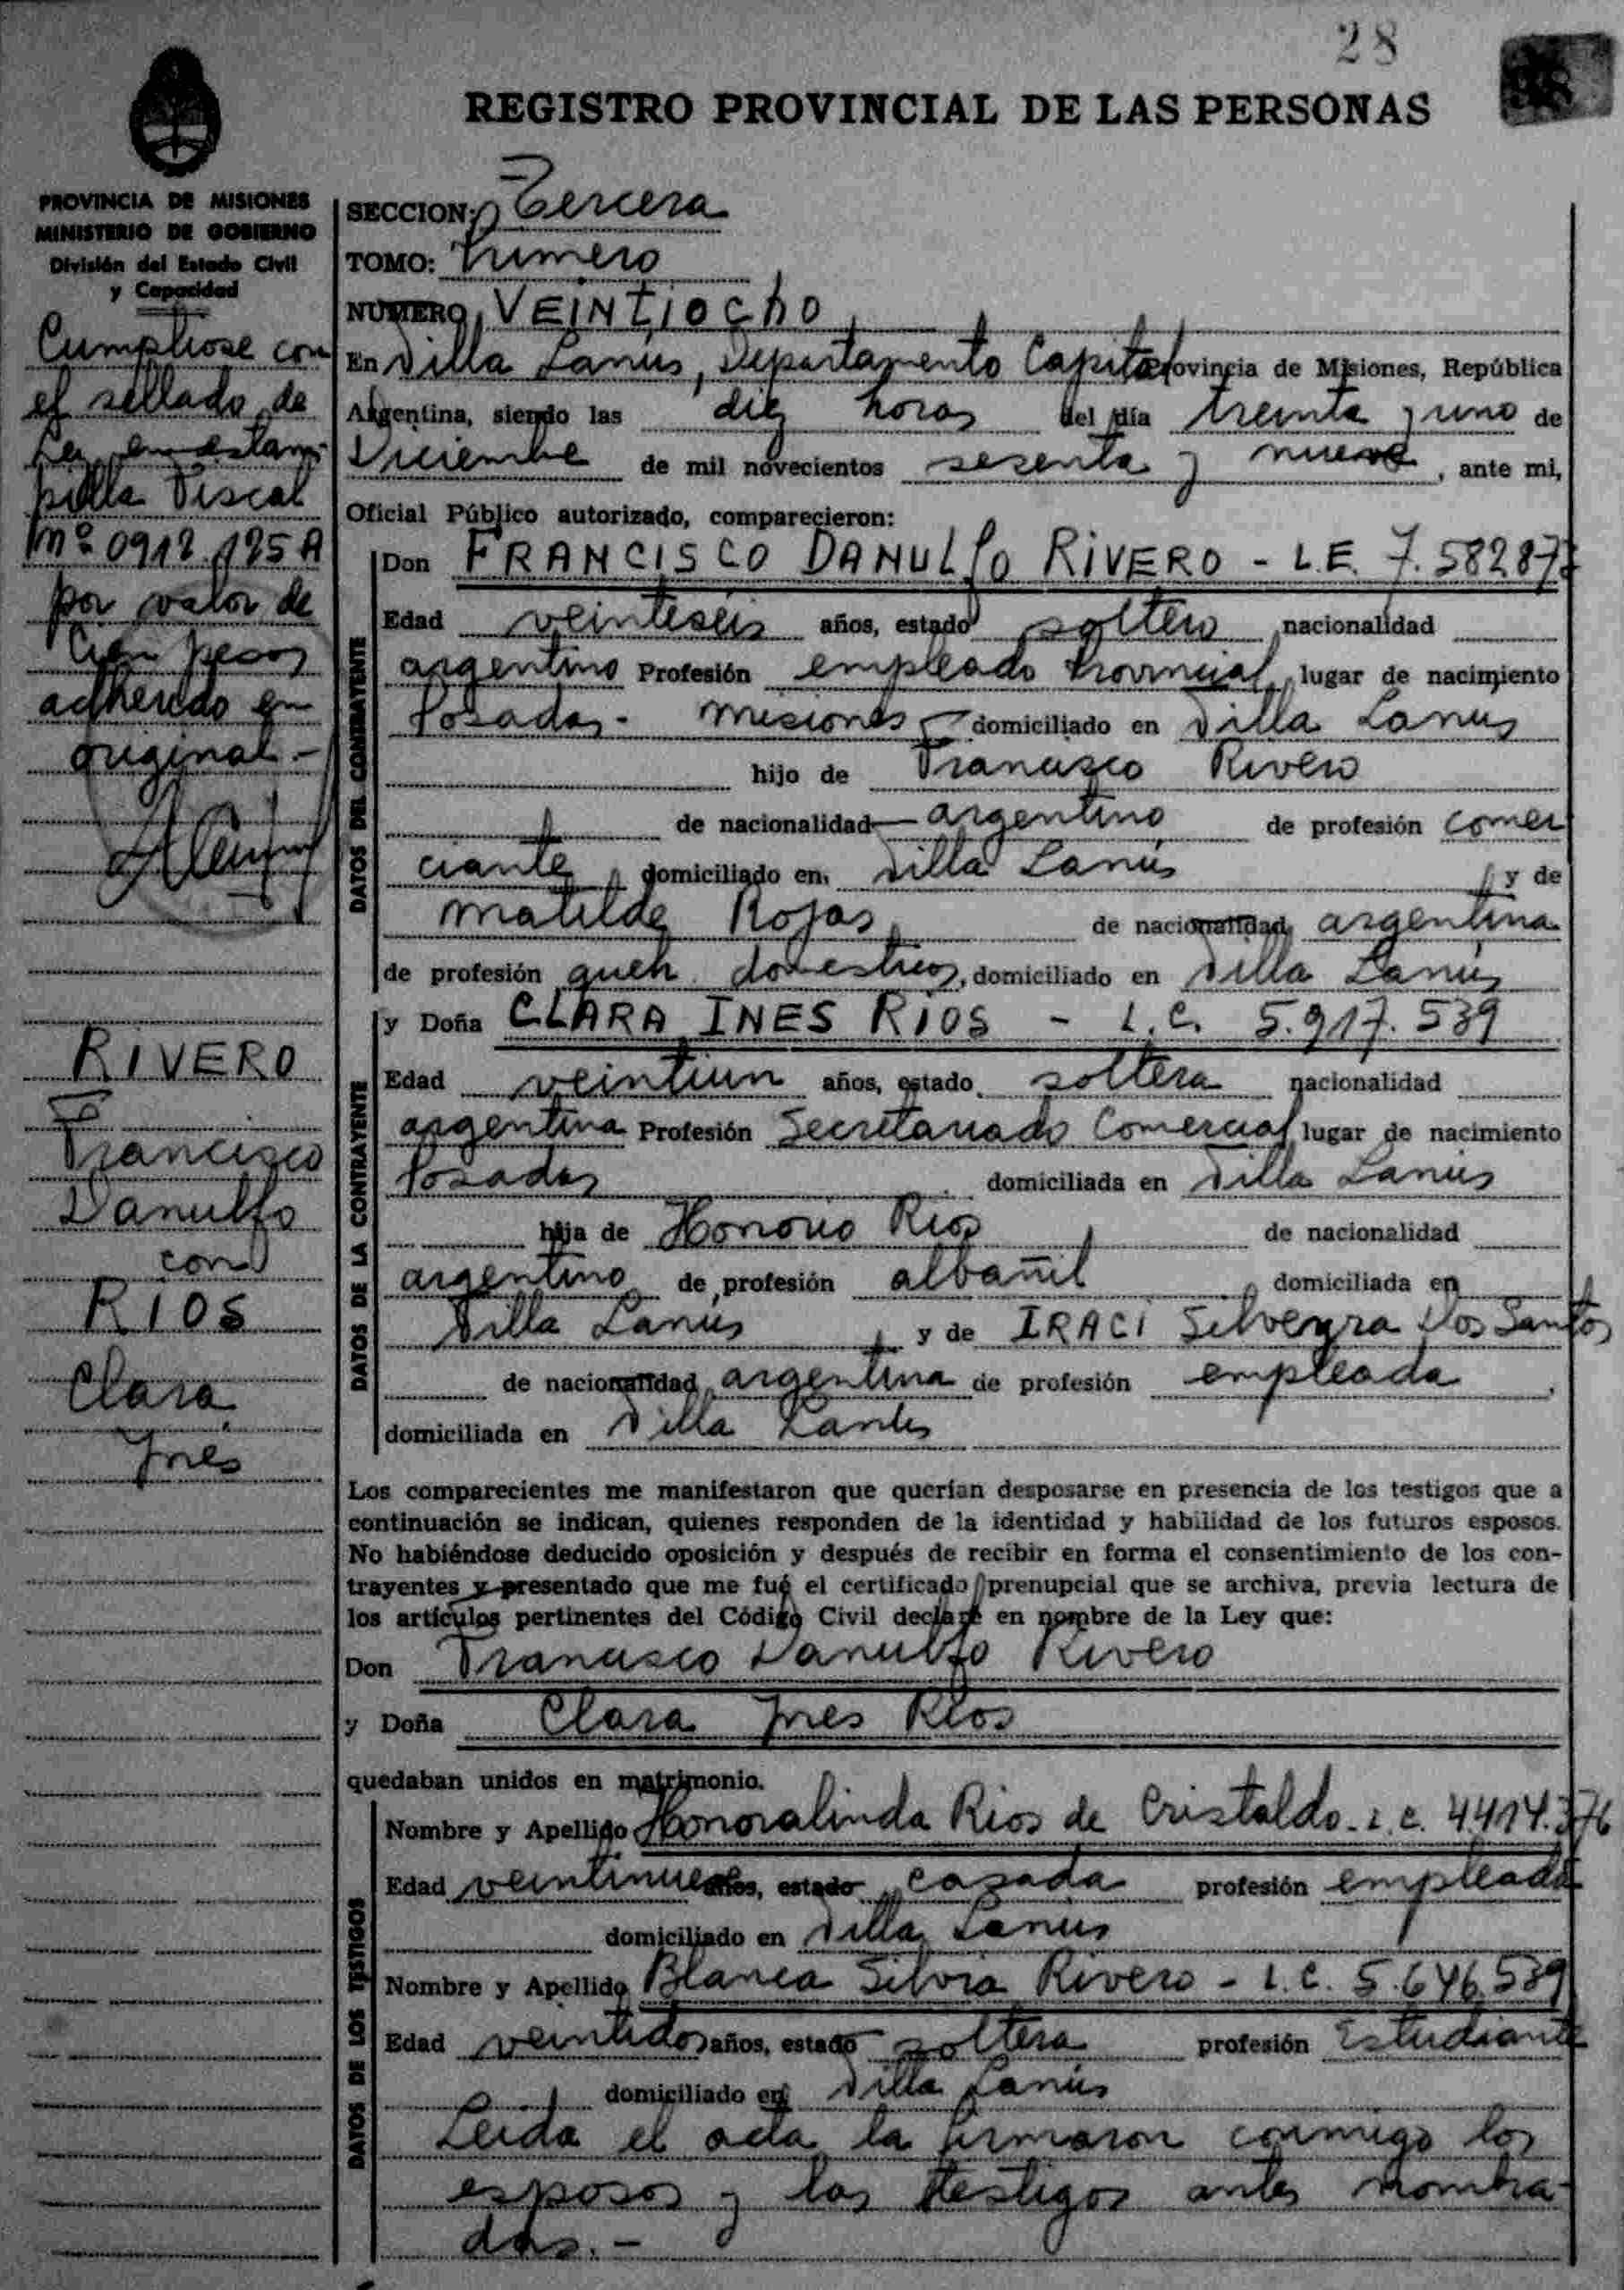 28
REGISTRO PROVINCIAL DE LAS PERSONAS
PROVINCIA DE MISIONES
MINISTERIO DE GOBIERNO
División del Estado Civil
y Capacidad
Cumpliose con
el sellado de
Ley en estam-
pilla Fiscal
Nº 0912.125 A
por valor de
Cien pesos
adherido en
original.-
RIVERO
Francisco
Danulfo
con
RIOS
Clara
Ines
SECCION: Tercera
TOMO: Primero
NUMERO VEINTIOCHO
En Villa Lanus, Departamento Capital Provincia de Misiones, República
Argentina, siendo las diez horas del día treinta y uno de
Diciembre de mil novecientos sesenta y nueve, ante mi,
Oficial Público autorizado, comparecieron:
DATOS DEL CONTRAYENTE
Don FRANCISCO DANULFO RIVERO - L.E. 7.582877
Edad veinteseis años, estado soltero nacionalidad
argentino Profesión empleado Provincial, lugar de nacimiento
Posadas - Misiones domiciliado en Villa Lanus
hijo de Francisco Rivero
de nacionalidad argentino de profesión comer
ciante domiciliado en Villa Lanús y de
Matilde Rojas de nacionalidad argentina
de profesión queh. domesticos, domiciliado en Villa Lanús
DATOS DE LA CONTRAYENTE
y Doña CLARA INES RIOS - L.C. 5.917.539
Edad veintiun años, estado soltera nacionalidad
argentina Profesión Secretariado Comercial lugar de nacimiento
Posadas domiciliada en Villa Lanús
hija de Honorio Rios de nacionalidad
argentino de profesión albañil domiciliada en
Villa Lanus y de IRACI Silveyra Dos Santos
de nacionalidad argentina de profesión empleada
domiciliada en Villa Lanús
Los comparecientes me manifestaron que querían desposarse en presencia de los testigos que a
continuación se indican, quienes responden de la identidad y habilidad de los futuros esposos.
No habiéndose deducido oposición y después de recibir en forma el consentimiento de los con-
trayentes y presentado que me fué el certificado prenupcial que se archiva, previa lectura de
los artículos pertinentes del Código Civil declaré en nombre de la Ley que:
Don Francisco Danulfo Rivero
y Doña Clara Ines Rios
quedaban unidos en matrimonio.
DATOS DE LOS TESTIGOS
Nombre y Apellido Honoralinda Rios de Cristaldo - L.C. 4.414.376
Edad veintinueve años, estado casada profesión empleada
domiciliado en Villa Lanus
Nombre y Apellido Blanca Silvia Rivero - L.C. 5.646.539
Edad veintidos años, estado soltera profesión Estudiante
domiciliado en Villa Lanús
Leida el acta la firmaron conmigo los
esposos y los testigos antes nombra-
dos.-